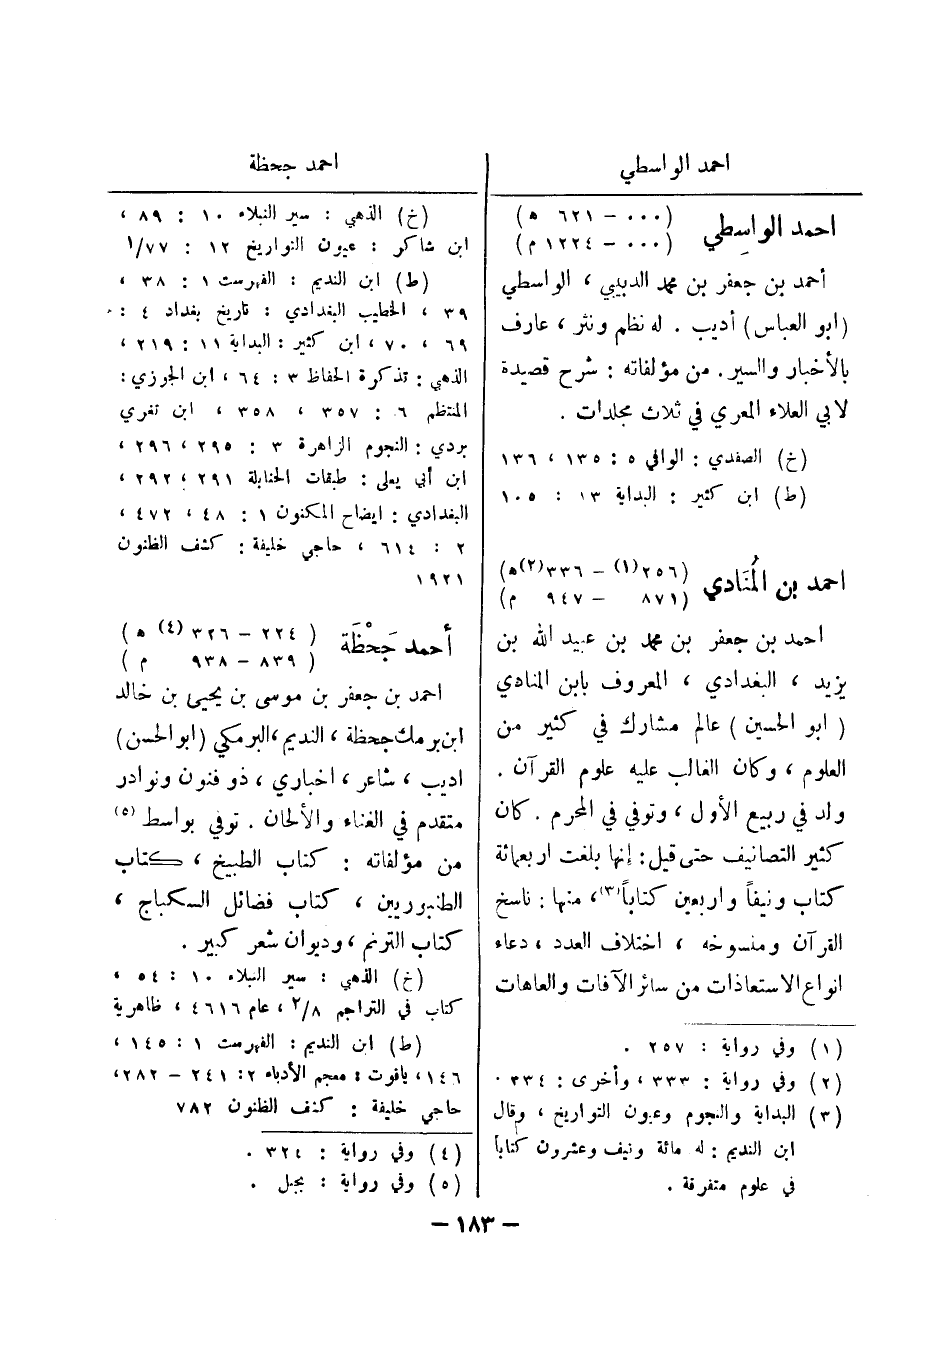 احمد الواسطي
احمد الواسِطي
(٠٠٠ – ٦٢١ ه)
(٠٠٠ – ١٢٢٤ م)
أحمد بن جعفر بن محمد الدبيبي ، الواسطي
(ابو العباس) أديب . له نظم ونثر ، عارف
بالأخبار والسير . من مؤلفاته : شرح قصيدة
لابي العلاء المعري في ثلاث مجلدات .
(خ) الصفدي : الوافي ٥ : ١٣٥ ، ١٣٦
(ط) ابن كثير : البداية ١٣ : ١٠٥
احمد بن المُنَادي
(٢٥٦(١) – ٣٣٦(٢)ه)
(٨٧١ – ٩٤٧ م)
احمد بن جعفر بن محمد بن عبيد الله بن
يزيد ، البغدادي ، المعروف بابن المنادي
( ابو الحسين ) عالم مشارك في كثير من
العلوم ، وكان الغالب عليه علوم القرآن .
ولد في ربيع الأول ، وتوفي في المحرم . كان
كثير التصانيف حتى قيل : إنها بلغت اربعمائة
كتاب ونيفاً واربعين كتاباً(٣)، منها : ناسخ
القرآن ومنسوخه ، اختلاف العدد ، دعاء
انواع الاستعاذات من سائر الآفات والعاهات
(١) وفي رواية : ٢٥٧ .
(٢) وفي رواية : ٣٣٣ ، وأخرى : ٣٣٤ .
(٣) البداية والنجوم وعيون التواريخ ، وقال
ابن النديم : له مائة ونيف وعشرون كتاباً
في علوم متفرقة .
احمد جحظة
(خ) الذهبي : سير النبلاء ١٠ : ٨٩ ،
ابن شاكر : عيون التواريخ ١٢ : ١/٧٧
(ط) ابن النديم : الفهرست ١ : ٣٨ ،
٣٩ ، الخطيب البغدادي : تاريخ بغداد ٤ :
٦٩ ، ٧٠ ، ابن كثير : البداية ١١ : ٢١٩ ،
الذهبي : تذكرة الحفاظ ٣ : ٦٤ ، ابن الجوزي :
المنتظم ٦ : ٣٥٧ ، ٣٥٨ ، ابن تغري
بردي : النجوم الزاهرة ٣ : ٢٩٥ ، ٢٩٦ ،
ابن أبي يعلى : طبقات الحنابلة ٢٩١ ، ٢٩٢ ،
البغدادي : ايضاح المكنون ١ : ٤٨ ، ٤٧٢ ،
٢ : ٦١٤ ، حاجي خليفة : كشف الظنون
١٩٢١
أحمد جَحْظَة
( ٢٢٤ – ٣٢٦ (٤) ه )
( ٨٣٩ – ٩٣٨ م )
احمد بن جعفر بن موسى بن يحيى بن خالد
ابن برمك جحظة ، النديم ، البرمكي (ابو الحسن)
اديب ، شاعر ، اخباري ، ذو فنون ونوادر
متقدم في الغناء والألحان . توفي بواسط (٥)
من مؤلفاته : كتاب الطبيخ ، كتاب
الطنبوريين ، كتاب فضائل السكباج ،
كتاب الترنم ، وديوان شعر كبير .
(خ) الذهبي : سير النبلاء ١٠ : ٥٤ ،
كتاب في التراجم ٢/٨ ، عام ٤٦١٦ ، ظاهرية
(ط) ابن النديم : الفهرست ١ : ١٤٥ ،
١٤٦ ، ياقوت : معجم الأدباء ٢ : ٢٤١ – ٢٨٢ ،
حاجي خليفة : كشف الظنون ٧٨٢
(٤) وفي رواية : ٣٢٤ .
(٥) وفي رواية : بجبل .
– ١٨٣ –